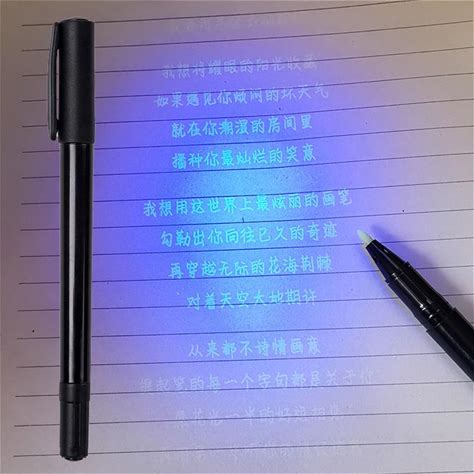 我想将耀眼的阳光收藏
如果遇见你烦闷的坏天气
就在你潮湿的房间里
播种你最灿烂的笑意
我想用这世界上最炫丽的画笔
勾勒出你向往已久的奇迹
再穿越无际的花海荆棘
对着天空大地期许
从来都不诗情画意
提起笔的每一个字句都是关于你